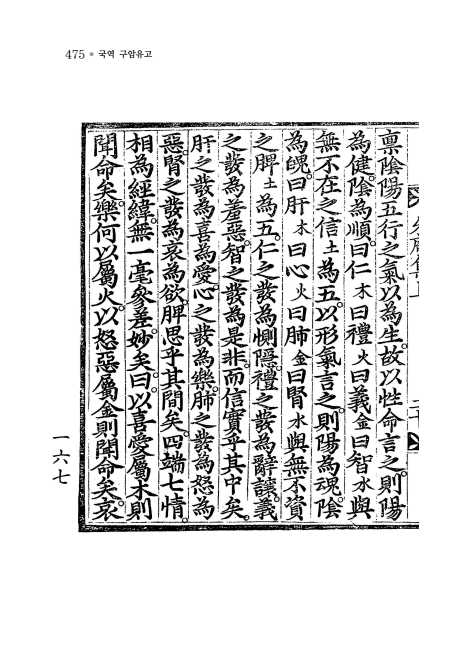 475 ● 국역 구암유고
稟陰陽五行之氣以爲生故以性命言之則陽
爲健陰爲順曰仁木曰禮火曰義金曰智水與
無不在之信土爲五以形氣言之則陽爲魂陰
爲魄曰肝木曰心火曰肺金曰腎水與無不資
之脾土爲五仁之發爲惻隱禮之發爲辭讓義
之發爲羞惡智之發爲是非而信實乎其中矣
肝之發爲喜爲愛心之發爲樂肺之發爲怒爲
惡腎之發爲哀爲欲脾思乎其間矣四端七情
相爲經緯無一毫參差妙矣曰以喜愛屬木則
聞命矣樂何以屬火以怒惡屬金則聞命矣哀
一六七